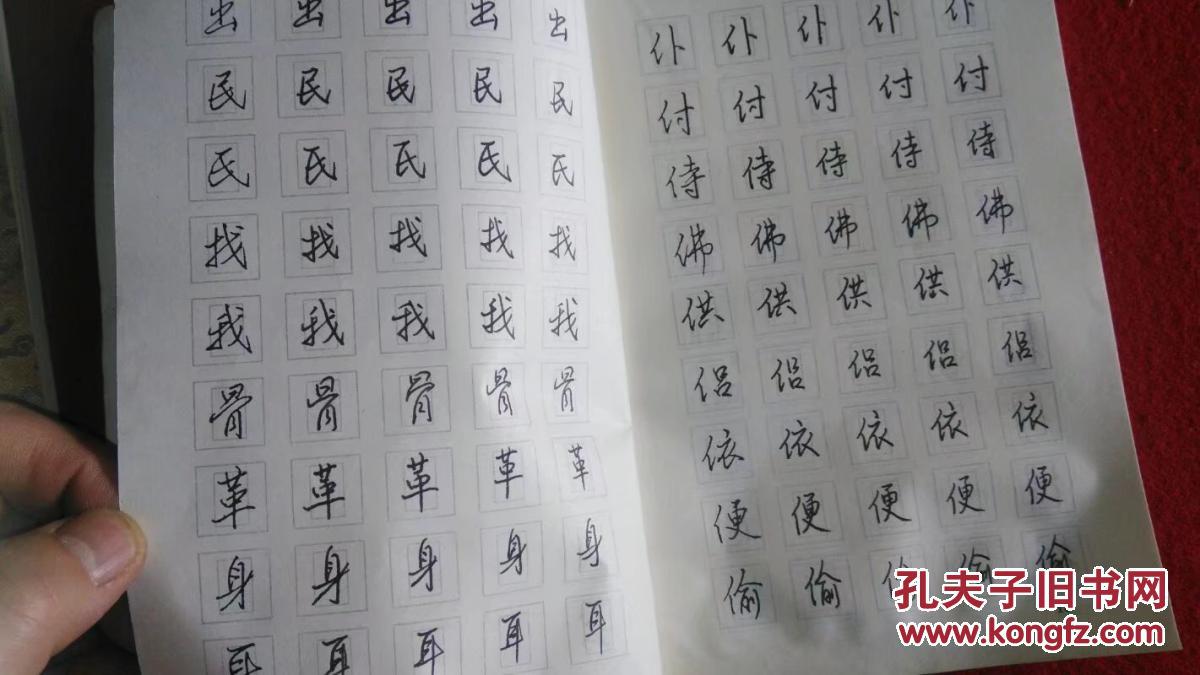 出 出 出 出 出
民 民 民 民 民
氏 氏 氏 氏 氏
找 找 找 找 找
我 我 我 我 我
骨 骨 骨 骨 骨
革 革 革 革 革
身 身 身 身 身
耳 耳 耳 耳 耳
仆 仆 仆 仆 仆
付 付 付 付 付
侍 侍 侍 侍 侍
佛 佛 佛 佛 佛
供 供 供 供 供
侣 侣 侣 侣 侣
依 依 依 依 依
便 便 便 便 便
偷 偷 偷 偷 偷
孔夫子旧书网
www.kongfz.com